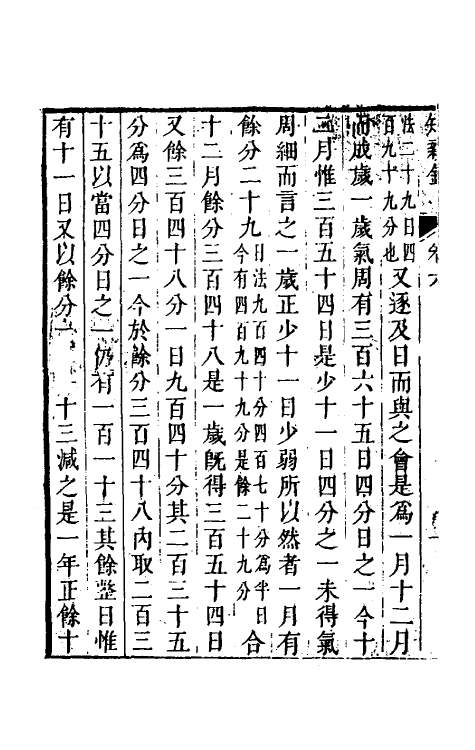 卷六
法二十九日四百九十九分也又逐及日而與之會是爲一月十二月
而成歲一歲氣周有三百六十五日四分日之一今十
二月惟三百五十四日是少十一日四分之一未得氣
周細而言之一歲正少十一日少弱所以然者一月有
餘分二十九日法九百四十分四百七十分爲半日今有四百九十九分是餘二十九分合
十二月餘分三百四十八是一歲旣得三百五十四日
又餘三百四十八分一日九百四十分其二百三十五
分爲四分日之一今於餘分三百四十八內取二百三
十五以當四分日之一仍有一百一十三其餘整日惟
有十一日又以餘分一十三減之是一年正餘十